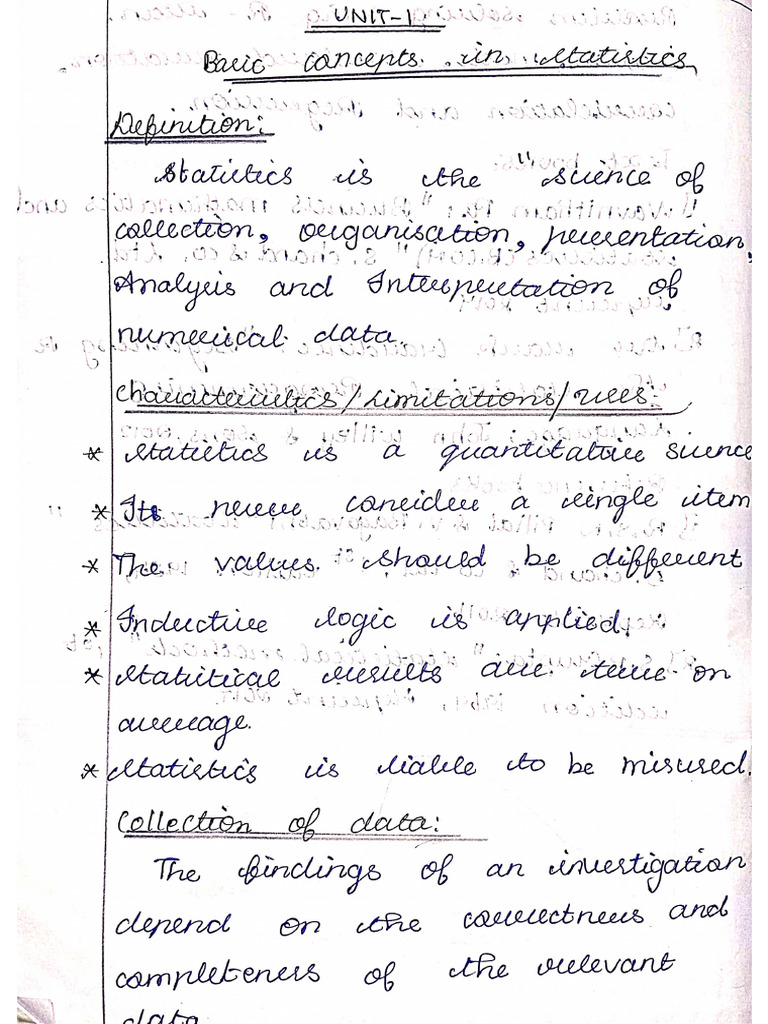 UNIT-1
Basic concepts in Statistics
Definition:
Statistics is the science of
collection, organisation, presentation,
Analysis and Interpretation of
numerical data.
Characteristics/Limitations/uses:
* Statistics is a quantitative science
* Its never consider a single item
* The values should be different
* Inductive logic is applied.
* Statistical results are true on
average.
* Statistics is liable to be misused.
Collection of data:
The findings of an investigation
depend on the correctness and
completeness of the relevant
data